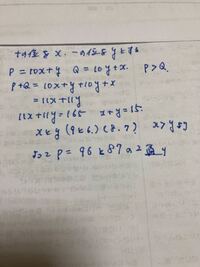 十の位をx. 一の位をyとする
P=10x+y Q=10y+x. P>Q.
P+Q=10x+y+10y+x
=11x+11y
11x+11y=165 x+y=15.
xとy (9と6.)(8.7) x>yより
よって P=96と87の2通り